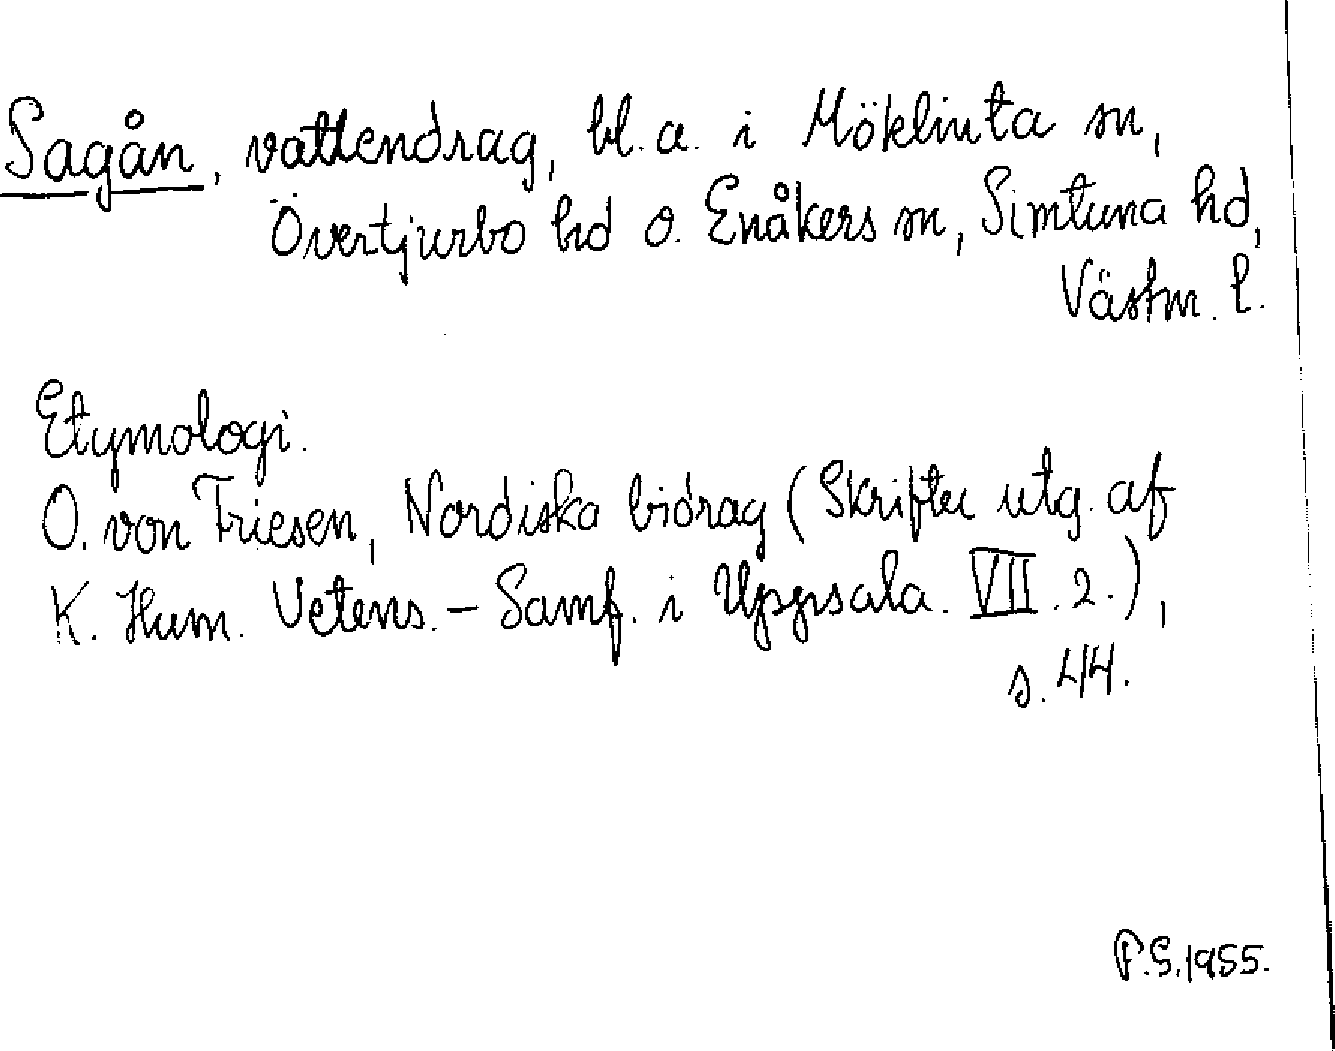 Sagån, vattendrag, bl.a. i Möklinta sn,
Övertjurbo hd o. Enåkers sn, Simtuna hd,
Västm. l.
Etymologi.
O. von Friesen, Nordiska bidrag (Skrifter utg. af
K. Hum. Vetens.-Samf. i Uppsala. VII. 2.),
s. 44.
P.G. 1955.